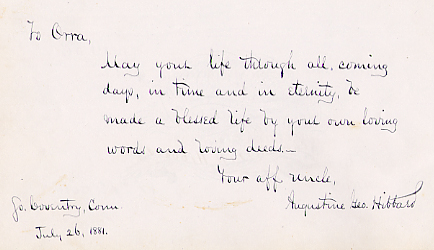 To Orra,
May your life through all coming
days, in time and in eternity, be
made a blessed life by your own loving
words and loving deeds.—
Your aff. uncle,
Augustine Geo. Hibbard
So. Coventry, Conn.
July 26, 1881.